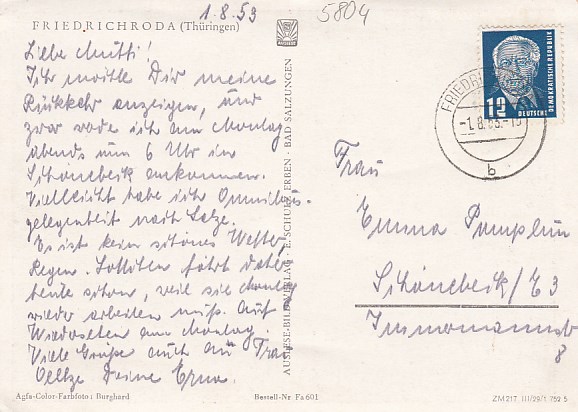 1.8.53
5804
FRIEDRICHRODA (Thüringen)
Liebe Mutti!
Ich wollte Dir meine
Rückkehr anzeigen, und
zwar werde ich am Montag
abends um 6 Uhr in
Schönebeck ankommen.
Vielleicht habe ich Omnibus-
gelegenheit nach
Es ist kein schönes Wetter,
Regen. fährt daher
heute schon, weil sie Montag
wieder arbeiten muß. Auf
Wiedersehen am Montag.
Viele Grüße auch an Frau
Deine Erna.
AUSLESE-BILD-VERLAG · E. SCHULZ ERBEN · BAD SALZUNGEN
DEUTSCHE
DEMOKRATISCHE REPUBLIK
12
FRIEDRICHRODA
-1.8.53.-1
b
Frau
Emma Pamplun
Schönebeck/E 3
8
Agfa-Color-Farbfoto: Burghard
Bestell-Nr. Fa 601
ZM 217 III/29/1 752 5